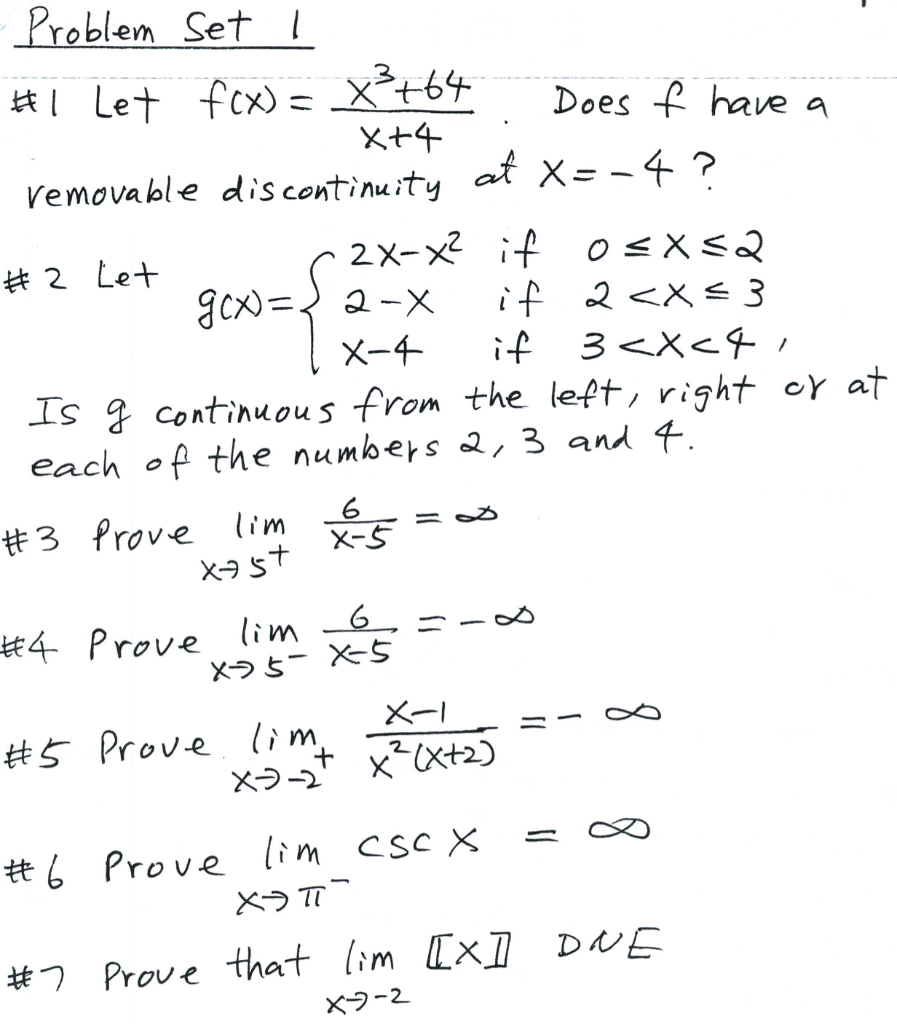 Problem Set 1
#1 Let f(x) = (x³+64)/(x+4). Does f have a
removable discontinuity at x = -4 ?
#2 Let g(x) = { 2x-x² if 0 ≤ x ≤ 2
2-x if 2 < x ≤ 3
x-4 if 3 < x < 4,
Is g continuous from the left, right or at
each of the numbers 2, 3 and 4.
#3 Prove lim x→5⁺ 6/(x-5) = ∞
#4 Prove lim x→5⁻ 6/(x-5) = -∞
#5 Prove lim x→-2⁺ (x-1)/(x²(x+2)) = -∞
#6 Prove lim x→π⁻ csc x = ∞
#7 Prove that lim x→-2 ⟦x⟧ DNE